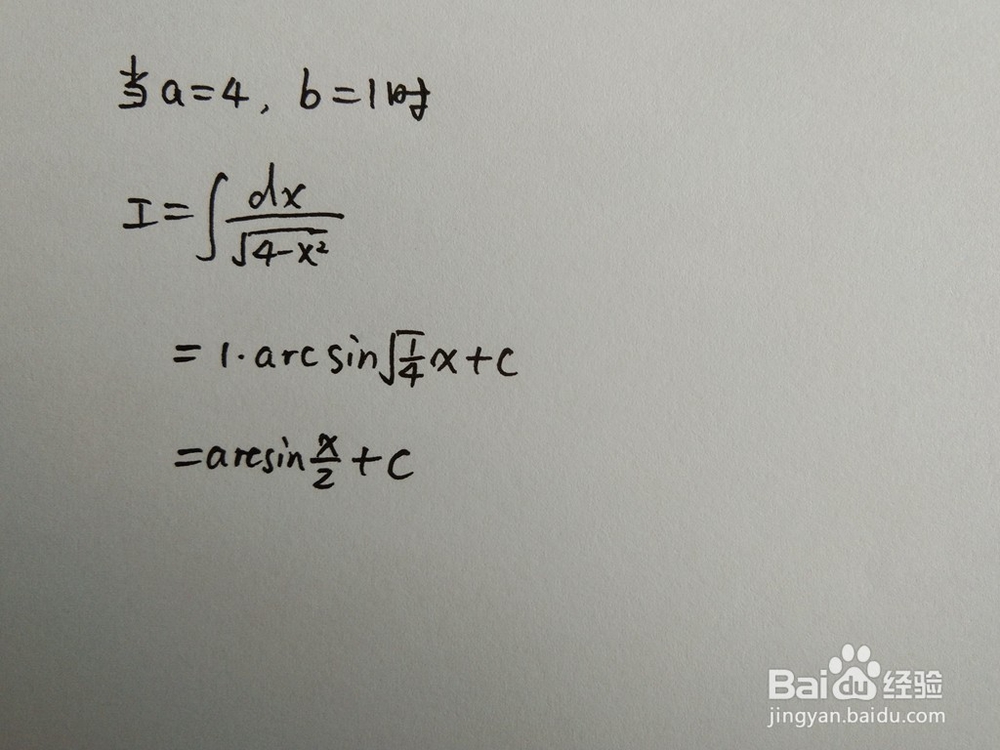 当a=4, b=1时
I=∫dx/√(4-x²)
=1·arcsin√(1/4)x+C
=arcsin x/2+C
Baidu经验
jingyan.baidu.com